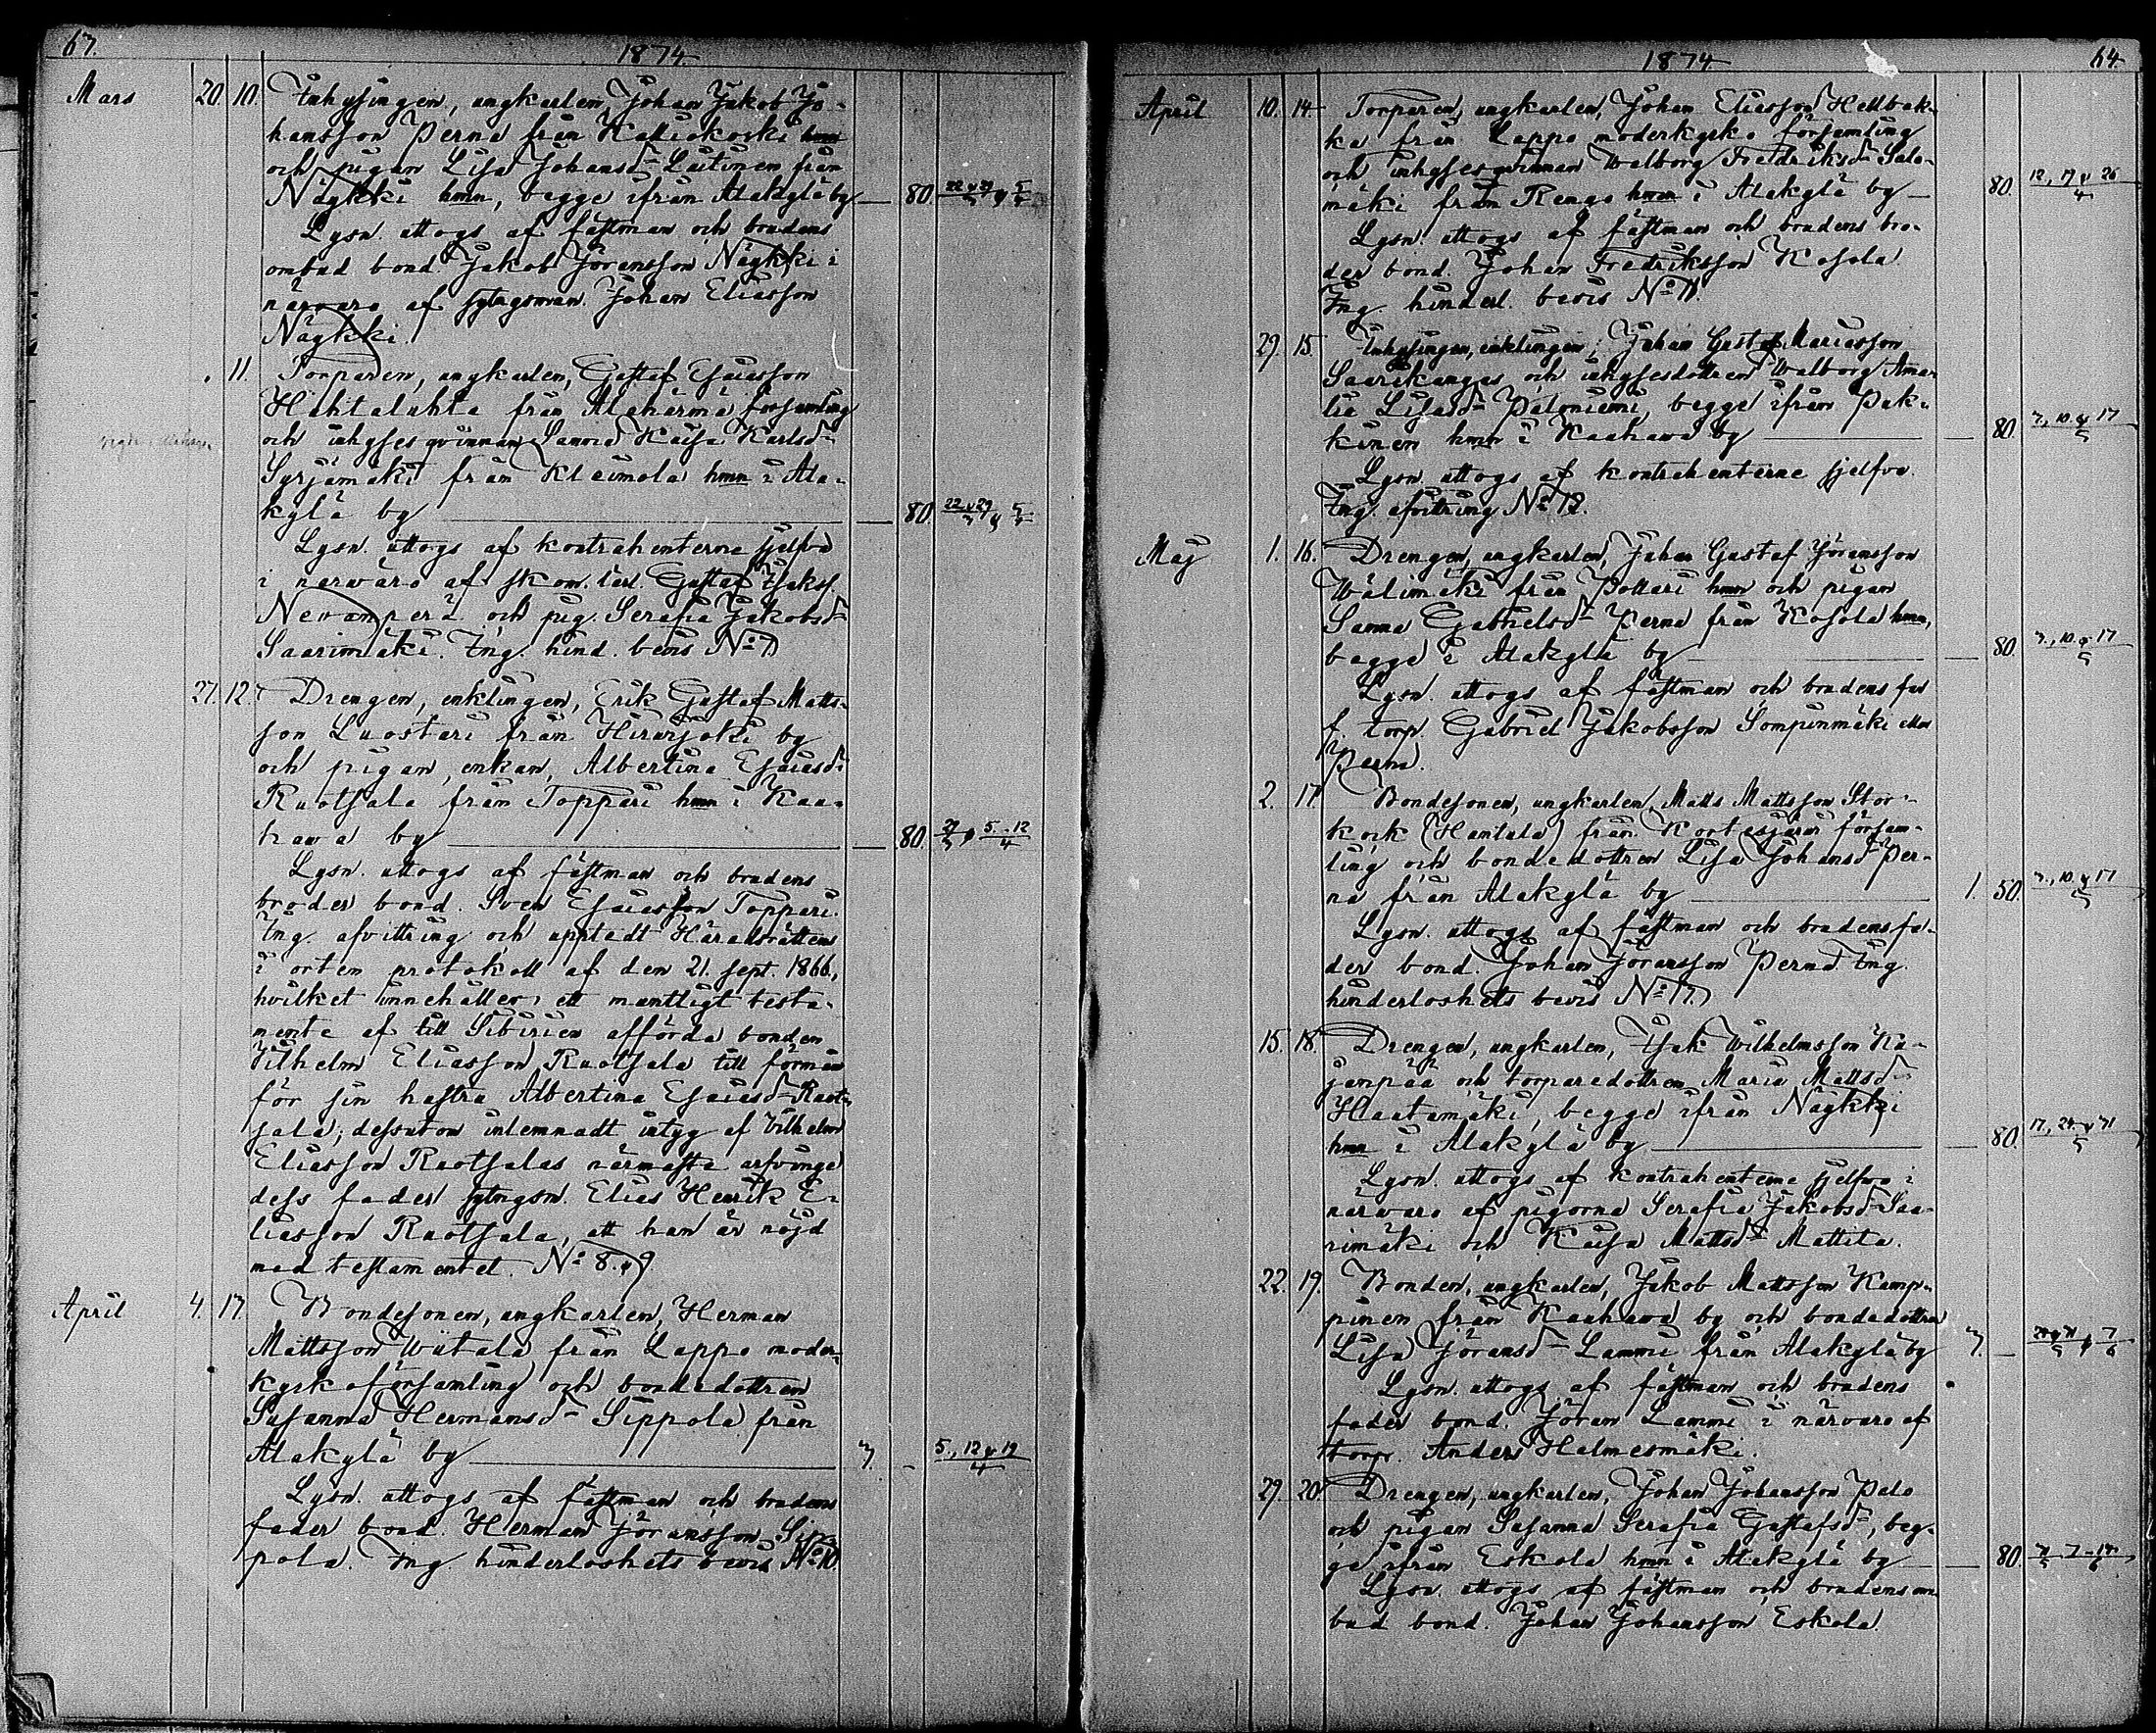 63.
1874
Mars 20. 10. Inhysingen, ungkarlen, Johan Jakob Jo-
hansson Perna från Kalliokoski hmn
och pigan Lisa Johansd- Luitinen från
Näykki hmn, begge ifrån Alakylä by — 80. 22 o 29/3 o 5/4
Lysn. uttogs af fästman och brudens
ombud bond. Jakob Jöransson Näykki i
närvaro af sytngsman. Johan Eliasson
Näykki.
11. Torparen, ungkarlen, Gustaf Esaiasson
Hahtalahta från Alahärmä församling
och inhyses qvinnan Sanna Kaisa Karlsd-
Syrjämäki från Kleimola hmn i Ala-
kylä by — 80. 22 o 29/3 o 5/4
Lysn. uttogs af kontrahenterne sjelfva
i närvaro af skom. lärl. Gustaf Isakss.
Nevanperä och pig. Serafia Jakobsd-
Saarimäki. Ing. hind. bevis No 7
27. 12. Drengen, enklingen, Erik Gustaf Matts-
son Luostari från Hirvijoki by
och pigan, enkan, Albertina Esaiasd-
Ruotsala från Toppari hmn i Kau-
hava by — 80. 29/3 o 5.-12/4
Lysn. uttogs af fästman och brudens
broder bond. Sven Esaiasson Toppari.
Ing. afvittring och upptedt Häradsrättens
i orten protokoll af den 21. Sept. 1866,
hvilket innehåller ett muntligt testa-
mente af till Sibirien afförda bonden
Vilhelm Eliasson Ruotsala till förmån
för sin hustru Albertina Esaiasd- Ruot-
sala; dessutom inlemnadt intyg af Vilhelm
Eliasson Ruotsalas närmaste arfvinge
dess fader sytngsm. Elias Henrik E-
liasson Ruotsala, att han är nöjd
med testamentet. No 8. o 9
April 4. 13. Bondesonen, ungkarlen, Herman
Mattsson Wiitala från Lappo moder-
kyrkoförsamling och bondedottren
Susanna Hermansd- Sippola från
Alakylä by — 3. - 5., 12 o 19/4
Lysn. uttogs af fästman och brudens
fader bond. Herman Jöransson Sip-
pola. Ing. hinderloshets bevis No 10.
1874
64
April 10. 14. Torparen, ungkarlen, Johan Eliasson Hellbak-
ka från Lappo moderkyrko församling
och inhyses qvinnan Walborg Fredriksd- Salo-
mäki från Rengo hmn i Alakylä by — 80. 12., 19 o 26/4
Lysn. uttogs af fästman och brudens bro-
der bond. Johan Fredriksson Kosola
Ing. hinderl. bevis No 11.
29. 15. Inhysingen, enklingen, Johan Gustaf Mariasson
Saarikangas och inhysesdottren Walborg Ama-
lia Lisasd- Paloniemi, begge ifrån Pak-
kinen hmn i Kauhava by — 80. 3., 10. o 17/5
Lysn. uttogs af kontrahenterne sjelfva.
Ing. afvittring No 12.
Maj 1. 16. Drengen, ungkarlen, Johan Gustaf Jöransson
Wälimäki från Pottari hmn och pigan
Sanna Gabrielsd- Perna från Kosola hmn,
begge i Alakylä by — 80. 3., 10. o 17/5
Lysn. uttogs af fästman och brudens far
f. torp. Gabriel Jakobsson Sompinmäki eller
Perna.
2. 17 Bondesonen, ungkarlen, Matts Mattsson Stor-
kock (Hantala) från Kortesjärvi försam-
ling och bondedottren Lisa Johansd- Per-
na från Alakylä by — 1. 50. 3., 10. o 17/5
Lysn. uttogs af fästman och brudens fa-
der bond. Johan Jöransson Perna. Ing.
hinderloshets bevis No 13
15. 18. Drengen, ungkarlen, Isak Wilhelmsson Ka-
janpää och torparedottren Maria Mattsd-
Haatamäki, begge ifrån Näykki
hmn i Alakylä by — 80. 17., 24. o 31/5
Lysn. uttogs af kontrahenterne sjelfva i
närvaro af pigorna Serafia Jakobsd- Saa-
rimäki och Kaisa Mattsd- Mattila.
22. 19. Bonden, ungkarlen, Jakob Mattsson Kamp-
pinen från Kauhava by och bondedottren
Lisa Jöransd- Lammi från Alakylä by 3. — 24 o 31/5 o 7/6
Lysn. uttogs af fästman och brudens
fader bond. Jöran Lammi i närvaro af
torpr. Anders Holmesmäki.
29. 20 Drengen, ungkarlen, Johan Johansson Palo
och pigan Susanna Serafia Gustafsd-, beg-
ge ifrån Eskola hmn i Alakylä by — 80. 31/5 7-14/6
Lysn. uttogs af fästman och brudens om-
bud bond. Johan Johansson Eskola.